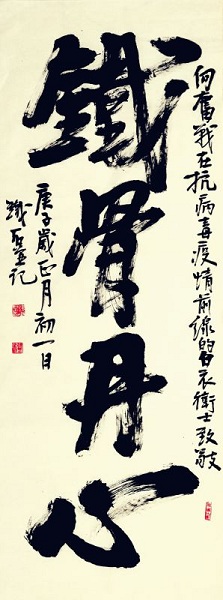 鐵骨丹心
向奮戰在抗病毒疫情前線的白衣衛士致敬
庚子歲正月初一日